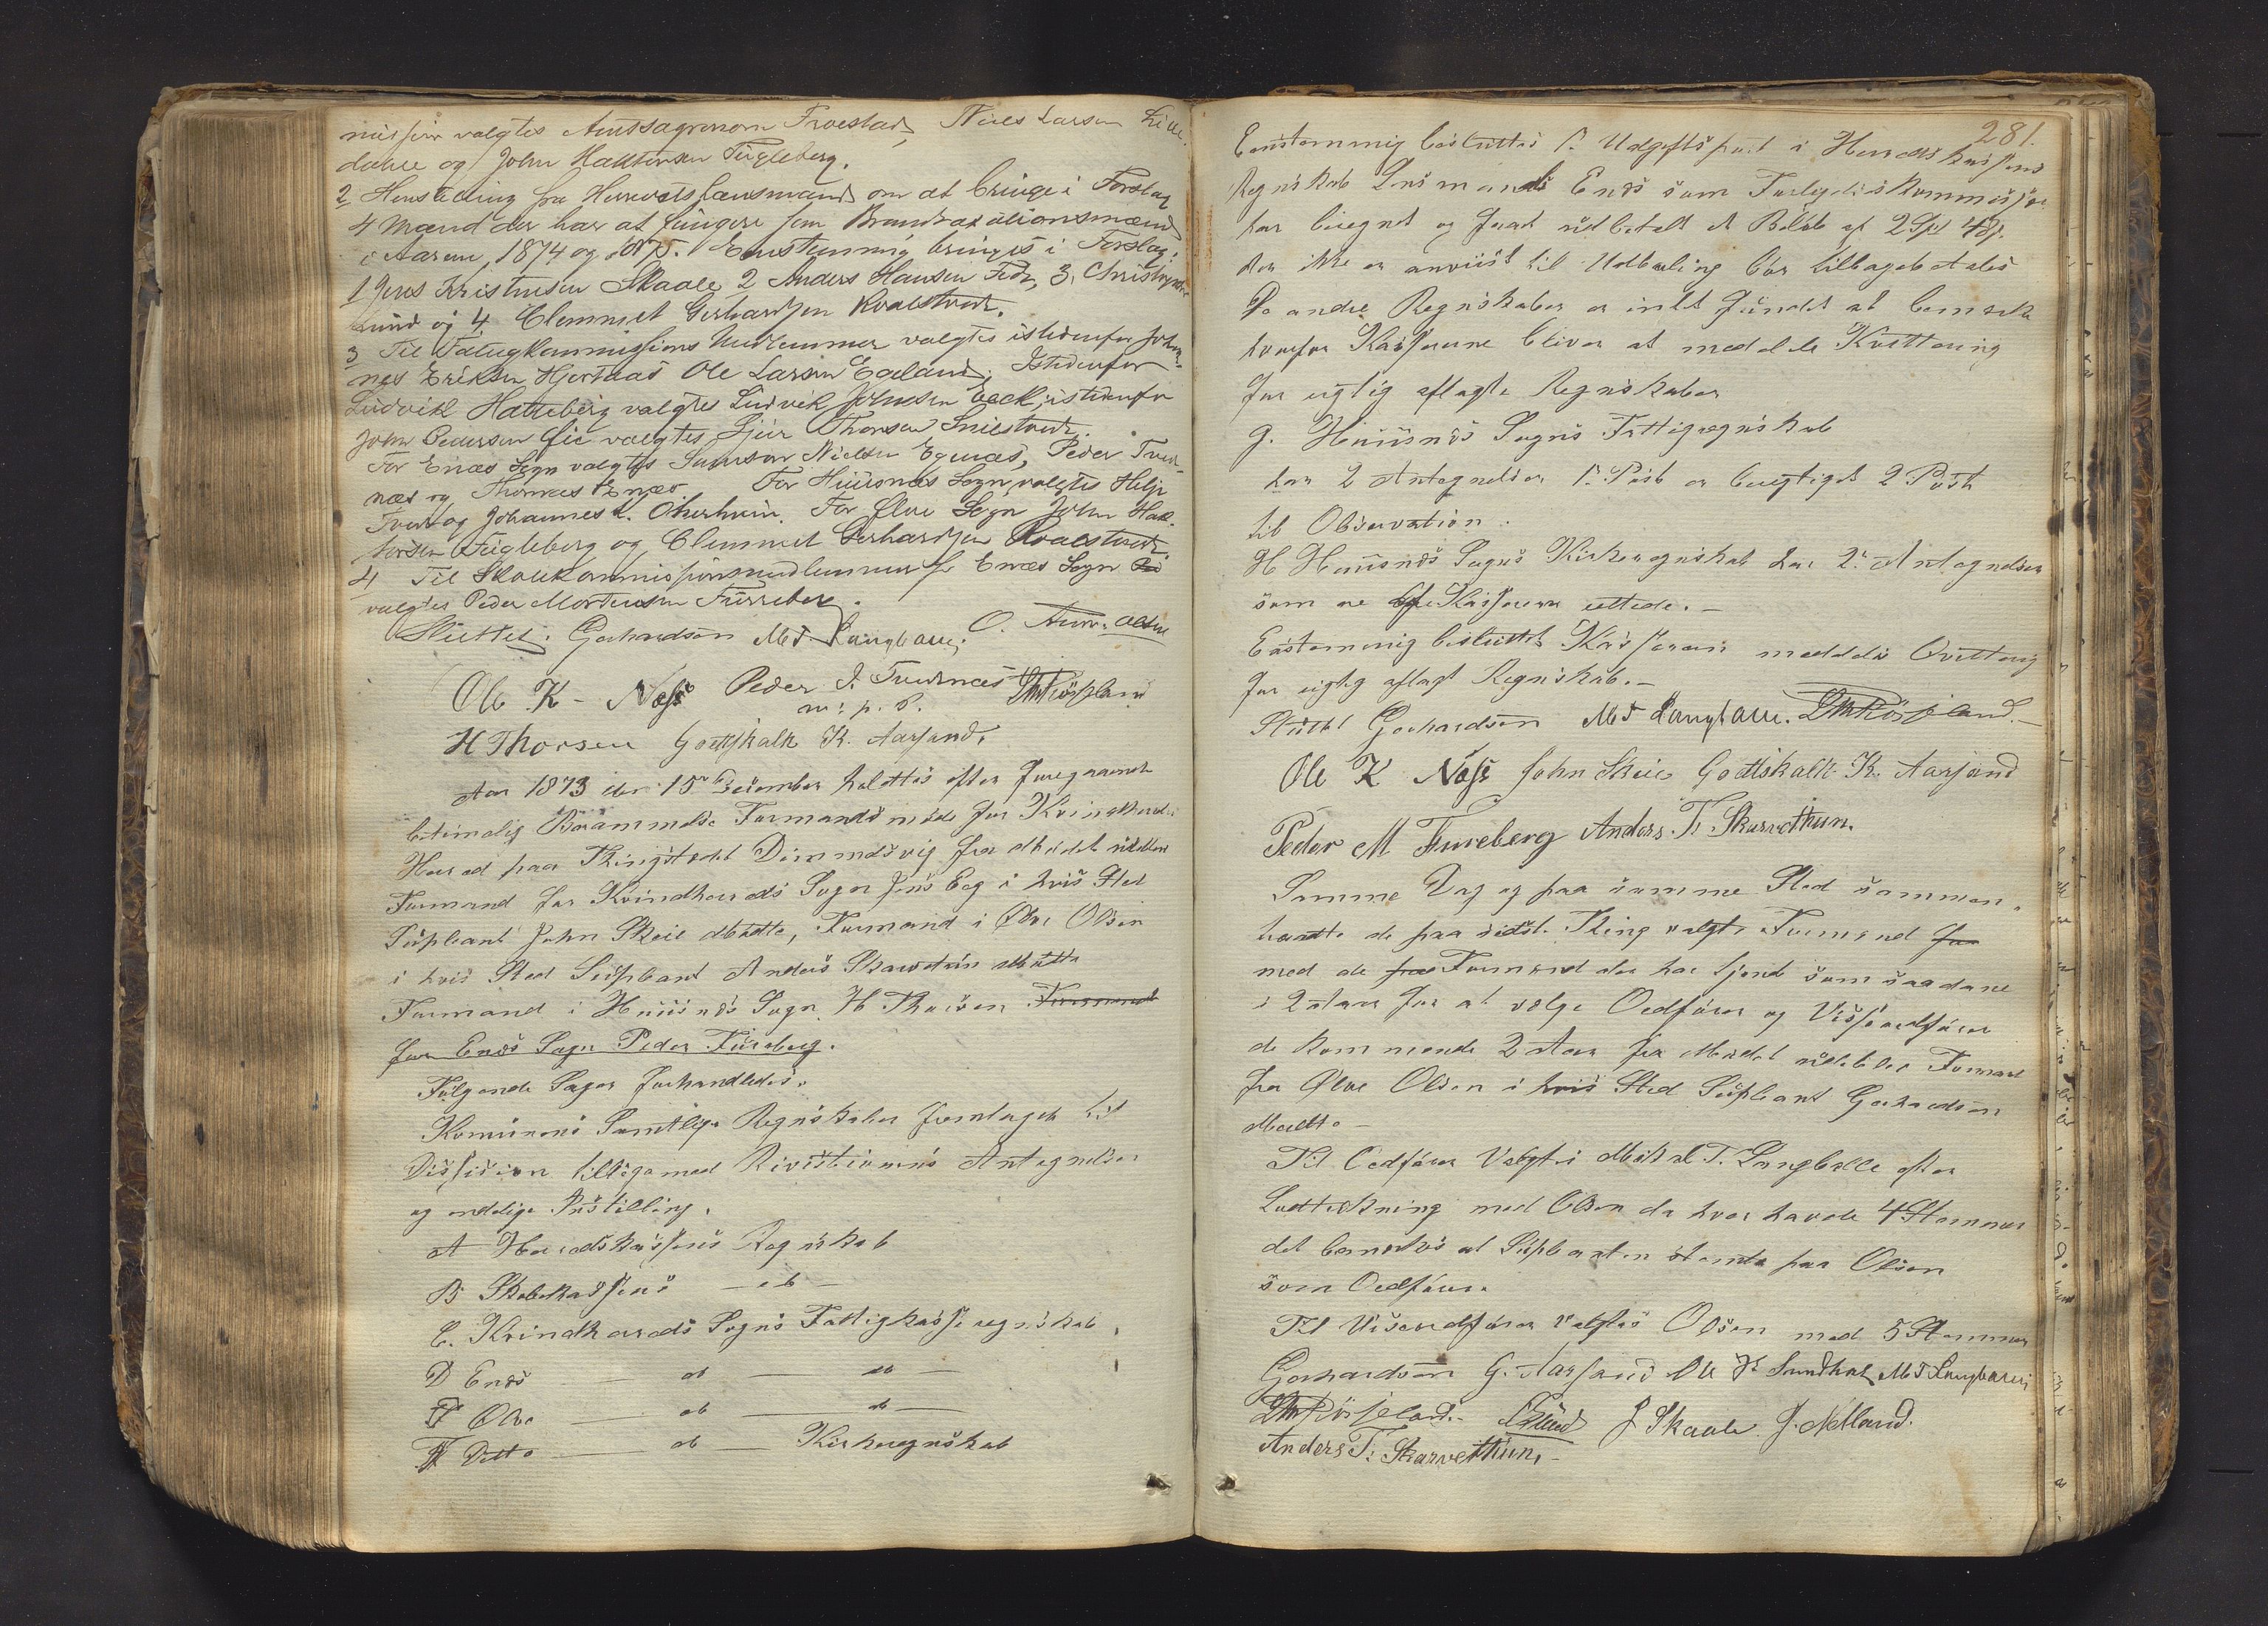 misjon valgtes Amtsagronom Frøestad, Niels Larsen Lille-
dahle og John Haktorsen Fugleberg.
2 Henstelling fra Herredets Lensmand om at bringe i Forslag
4 Mænd der har at fungere som Brandtaxationsmænd
i Aarene 1874 og 1875. Enstemmig bringes i Forslag:
1 Jens Kristensen Skaale 2 Anders Hansen Fed, 3,
Lund og 4 Clemmet Gerhardsen Kvalstvedt.
3 Til Fatigkommissions Medlemmer valgtes istedenfor Johan-
nes Eriksen Hjortaas Ole Larsen Egeland, Istedenfor
Ludvik Hatteberg valgtes Ludvik Johnsen Eeck, istedenfor
John Pedersen valgtes Sjur Thorsen
For Enæs Sogn valgtes Samson Nielsen Egenæs, Peder Tvedt-
næs og Thomas Enæs. For Huusnæs Sogn valgtes Helje
Tvedt og Johannes L. Ølve Sogn John Hak-
torsen Fugleberg og Clemmet Gerhardsen Kvalstvedt.
4 Til Skolekommissionsmedlemmer for Enæs Sogn
valgtes Peder Mortensen Fureberg.
Sluttet. Gerhardsen M T. Langballe. O.
Ole K. Næss Peder J. Tvedtnæs LMRøssland
m. p. P.
H Thorsen Gottskalk K. Aarsand.
Aar 1873 den 15de December holdttes efter foregaaende
betimelig Berammelse Formandsmøde for Kvindherreds
Herred paa Thingstedet Dimmelsvig fra Mødet udebler
Formand for Kvindherreds Sogn Jens Eeg i hvis Sted
Supleant John Skeie Mødte, Formand i Ølve Olsen
i hvis Sted Supleant Anders Skarvetun Mødte
Formand i Huusnæs Sogn H Thorsen Formand
for Enæs Sogn Peder Fureberg.
Følgende Sager forhandledes.
Komunens Samtlige Regnskaber fremlagdt til
Dissision tilligemed Revisionens Antegnelser
og endelige Instilling.
A Herredskassens Regnskab
B Skolekassens — do —
C. Kvindherreds Sogns Fattigkasse regnskab
D Enæs — do — do —
F Ølve — do — do —
F Ditto — do — Kirkeregnskab
281.
Eenstemmig besluttes 1. Udgiftspost i Herredskassens
Regnskab Lensmands Enæs som Forligelses Kommissær
har beregnet og faaet udbetalt et Beløb af 2 Spd 48 s.
der ikke er anviist til Udbetaling bør tilbagebetales
De andre Regnskaber er intet fundet at bemærke
hvorfor Kassererne bliver at meddele Kvittering
for rigtig aflagte Regnskaber
G. Huusnæs Sogns Fattigregnskab
har 2 Antegnelser 1. Post er berigtiget 2 Post
til Observation.
H Huusnæs Sogns Kirkeregnskab har 2. Antegnelser
som er af Kassereren rettede. —
Eenstemmig besluttet Kassereren meddeles Qvittering
for rigtig aflagt Regnskab. —
Sluttet Gerhardsen M T Langballe. LMRøssland. —
Ole K Næss John Skeie Gottskalk K. Aarsand
Peder M Fureberg Anders T. Skarvethun.
Samme Dag og paa samme Sted sammen-
traadte de paa sidste Thing valgte Formænd for
med de fra Formænd der har tjent som saadane
i 2 Aar for at vælge Ordfører og Viseordfører
de kommende 2 Aar fra Mødet udebler Formand
fra Ølve Olsen i hvis Sted Supleant Gerhardsen
Mødte —
Til Ordfører Valgtes Mikal T. Langballe efter
Lodtrækning med Olsen da hver havde 4 Stemmer
det bemerkes at Supleanten stemte paa Olsen
som Ordfører.
Til Viseordfører valgtes Olsen med 5 Stemmer
Gerhardsen G. Aarsand Ole H. Sundhal M T Langballe
LMRøssland. — Lund J Skaale J. Netland.
Anders T. Skarvethun. —